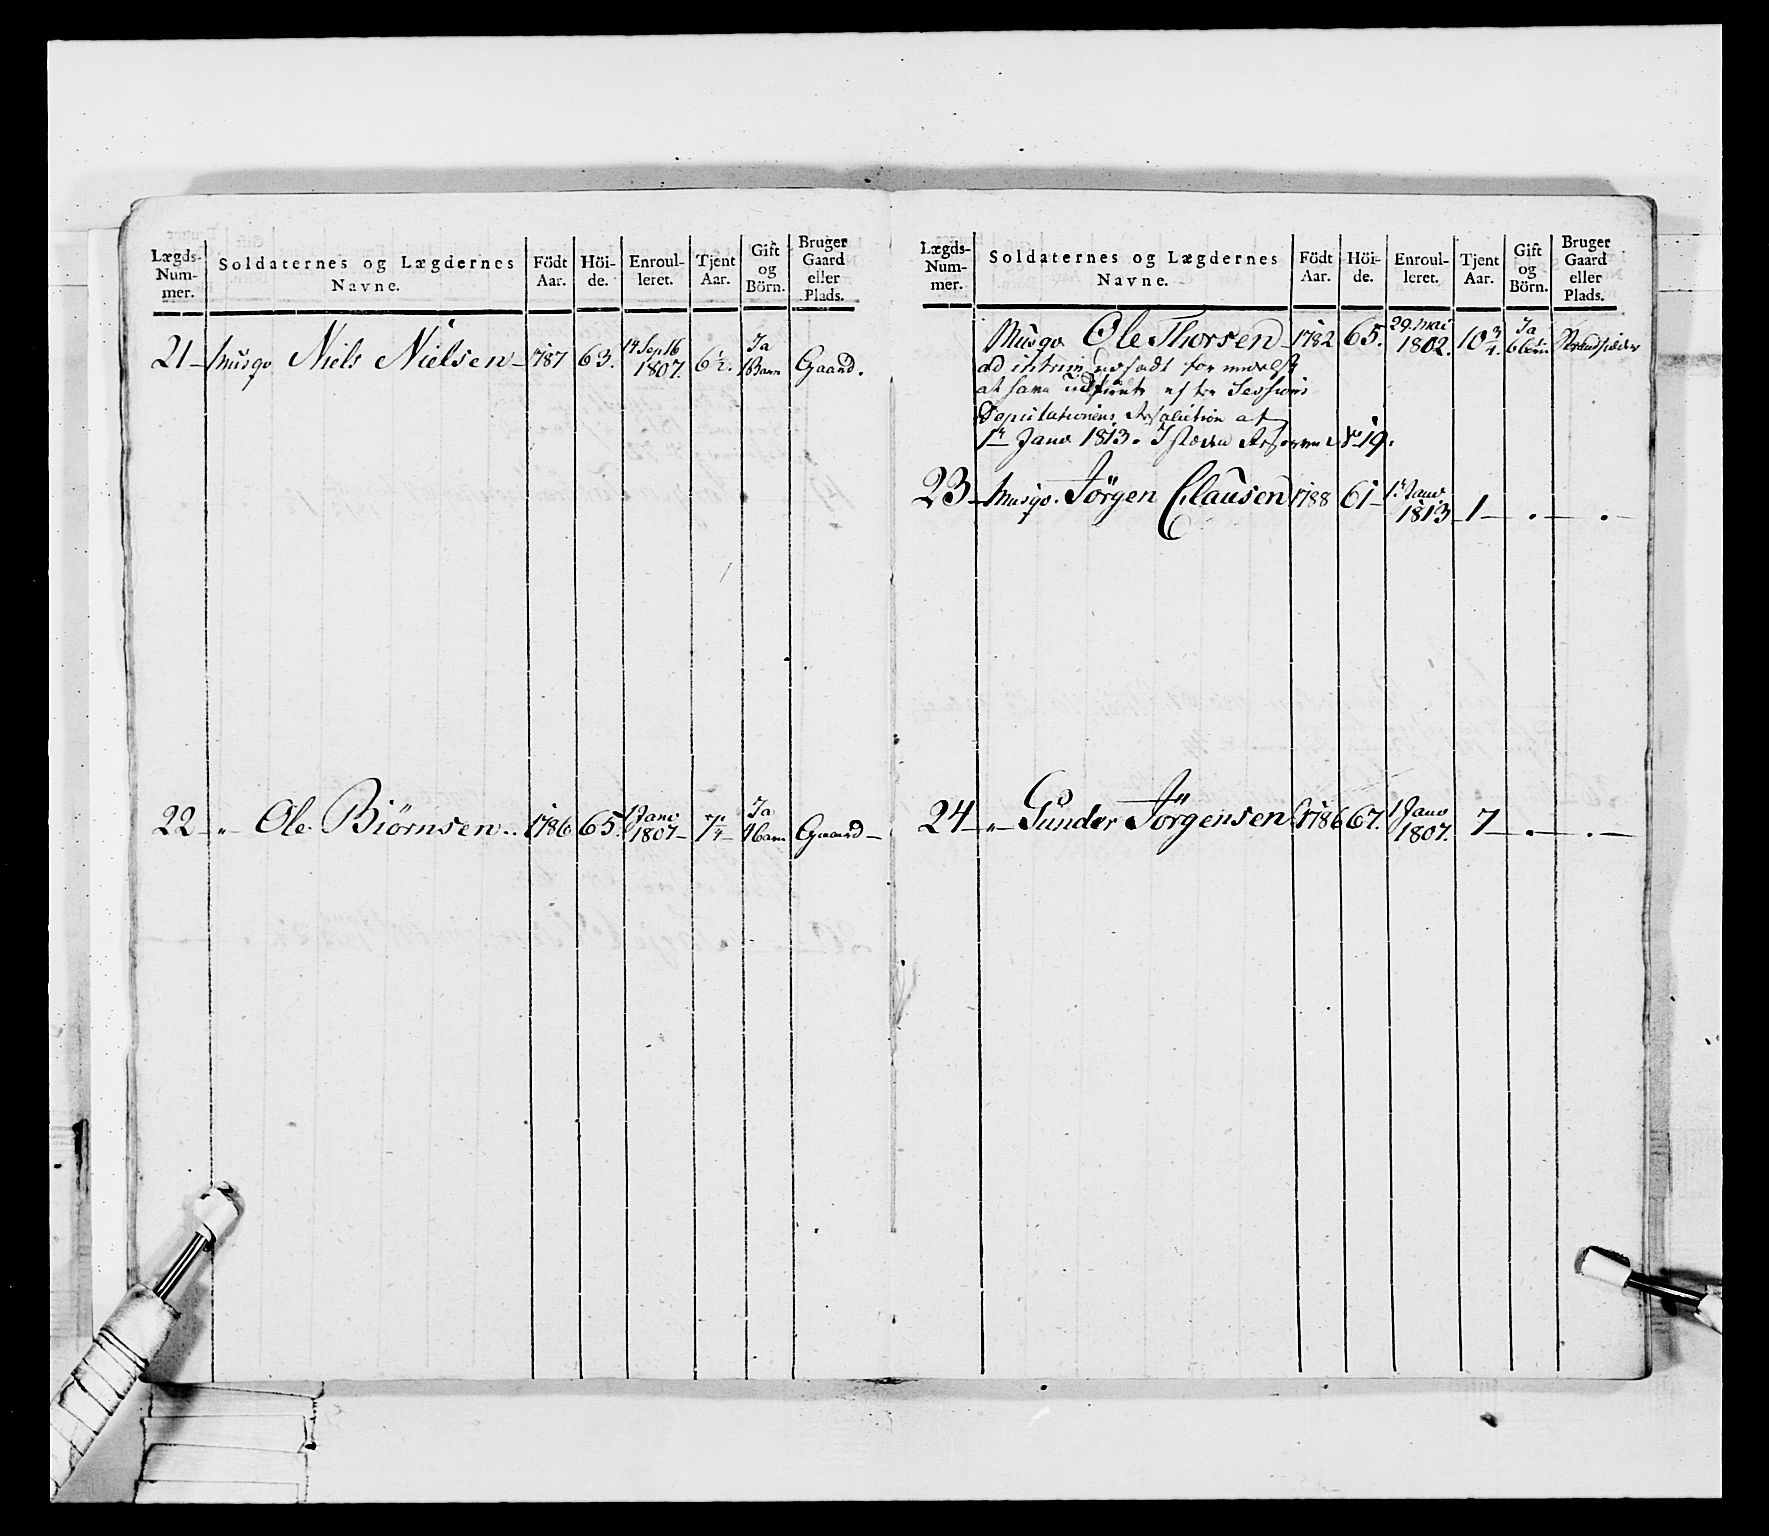 Lægds-Nummer. Soldaternes og Lægdernes Navne. Födt Aar. Höide. Enroulleret. Tjent Aar. Gift og Börn. Bruger Gaard eller Plads.
21 - Musqr Niels Nielsen - 1787 63. 14 Sept 1807. 6 1/2. Ja 1 Barn Gaard.
22 - " - Ole Biörnsen. 1786 65. 1 Janv 1807 - 7 Ja 1 barn. Gaard -
Lægds-Nummer. Soldaternes og Lægdernes Navne. Födt Aar. Höide. Enroulleret. Tjent Aar. Gift og Börn. Bruger Gaard eller Plads.
Musqr Ole Thorsen 1782 65. 29 Mai 1802. 10 3/4. Ja 6 börn Strandsidder
ad intrim udsadt formedelst
at have udtient efter Sessions
Deputationens Resolution af
1te Janv 1813. I stæden Reserve No 19.
23 - Musqr. Jörgen Clausen 1788 61 - 1te Janv 1813 1 - . - . -
24 - " - Gunder Jörgensen 1786 67. 1 Janv 1807. 7 - . - . -